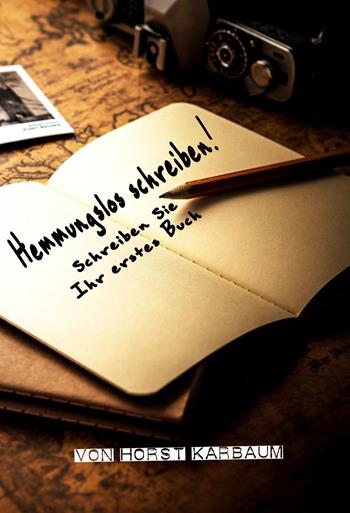 Hemmungslos schreiben!
Schreiben Sie
Ihr erstes Buch
VON HORST KARBAUM